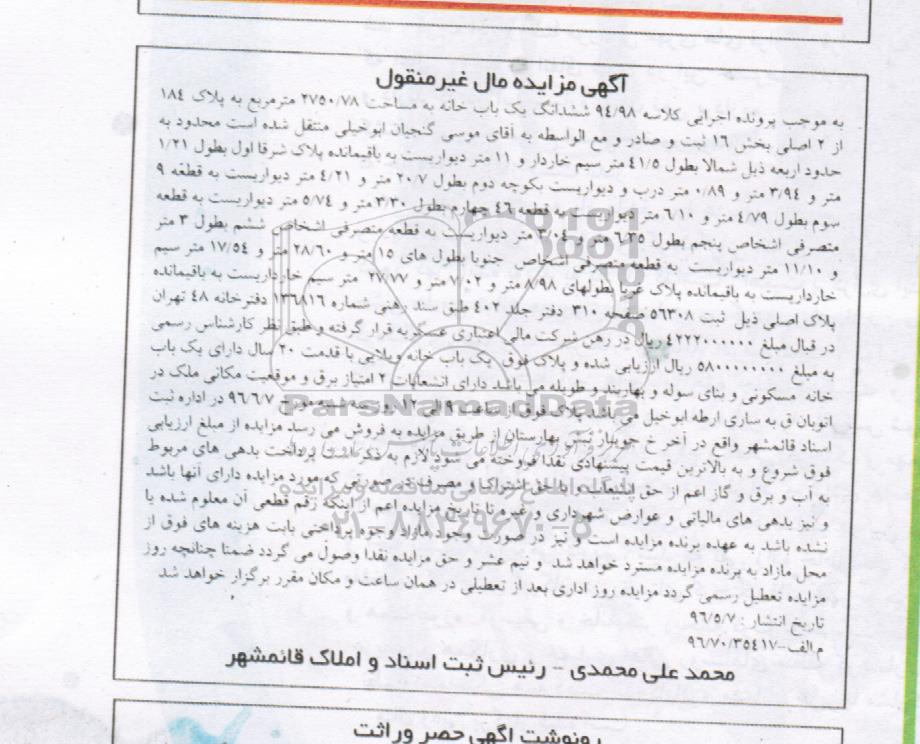 آگهی مزایده مال غیرمنقول
به موجب پرونده اجرایی کلاسه ۹۴/۹۸ ششدانگ یک باب خانه به مساحت ۲۷۵۰/۷۸ مترمربع به پلاک ۱۸۴
از ۲ اصلی بخش ۱۶ ثبت و صادر و مع الواسطه به آقای موسی گنجیان ابوخیلی منتقل شده است محدود به
حدود اربعه ذیل شمالا بطول ۴۱/۵ متر سیم خاردار و ۱۱ متر دیواریست به باقیمانده پلاک شرقا اول بطول ۱/۲۱
متر و ۳/۹۴ متر و ۰/۸۹ متر درب و دیواریست بکوچه دوم بطول ۲۰/۷ متر و ۴/۲۱ متر دیواریست به قطعه ۹
سوم بطول ۴/۷۹ متر و ۶/۱۰ متر دیواریست به قطعه ۴۶ چهارم بطول ۳/۳۰ متر و ۵/۷۴ متر دیواریست به قطعه
متصرفی اشخاص پنجم بطول ۶/۳۵ متر و متر دیواریست به قطعه متصرفی اشخاص ششم بطول ۳ متر
و ۱۱/۱۰ متر دیواریست به قطعه متصرفی اشخاص جنوبا بطول های ۱۵ متر و ۲۸/۶۰ متر و ۱۷/۵۴ متر سیم
خارداریست به باقیمانده پلاک غربا بطولهای ۸/۹۸ متر و ۷/۰۲ متر و ۲۷/۷۷ متر سیم خارداریست به باقیمانده
پلاک اصلی ذیل ثبت ۵۶۳۰۸ صفحه ۳۱۰ دفتر جلد ۴۰۲ طبق سند رهنی شماره ۱۳۶۸۱۶ دفترخانه ۴۸ تهران
در قبال مبلغ ۴۲۲۲۰۰۰۰۰۰ ریال در رهن شرکت مالی اعتباری عسکریه قرار گرفته و طبق نظر کارشناس رسمی
به مبلغ ۵۸۰۰۰۰۰۰۰۰ ریال ارزیابی شده و پلاک فوق یک باب خانه ویلایی با قدمت ۲۰ سال دارای یک باب
خانه مسکونی و بنای سوله و بهاربند و طویله می باشد دارای انشعابات ۲ امتیاز برق و موقعیت مکانی ملک در
اتوبان ق به ساری ارطه ابوخیل می باشد پلاک فوق از ساعت ۹ الی ۱۲ روز سه شنبه مورخ ۹۶/۶/۷ در اداره ثبت
اسناد قائمشهر واقع در آخر خ جویبار نبش بهارستان از طریق مزایده به فروش می رسد مزایده از مبلغ ارزیابی
فوق شروع و به بالاترین قیمت پیشنهادی نقدا فروخته می شود لازم به ذکر است پرداخت بدهی های مربوط
به آب و برق و گاز اعم از حق انشعاب و یا حق اشتراک و مصرف در صورتی که مورد مزایده دارای آنها باشد
و نیز بدهی های مالیاتی و عوارض شهرداری و غیره تا تاریخ مزایده اعم از اینکه رقم قطعی آن معلوم شده یا
نشده باشد به عهده برنده مزایده است و نیز در صورت وجود مازاد وجوه پرداختی بابت هزینه های فوق از
محل مازاد به برنده مزایده مسترد خواهد شد و نیم عشر و حق مزایده نقدا وصول می گردد ضمنا چنانچه روز
مزایده تعطیل رسمی گردد مزایده روز اداری بعد از تعطیلی در همان ساعت و مکان مقرر برگزار خواهد شد
تاریخ انتشار : ۹۶/۵/۷
م.الف-۹۶/۷۰/۳۵۴۱۷
محمد علی محمدی - رئیس ثبت اسناد و املاک قائمشهر
ParsNamadData
۰۲۱-۸۸۳۴۹۶۷۰-۵
رونوشت آگهی حصر وراثت